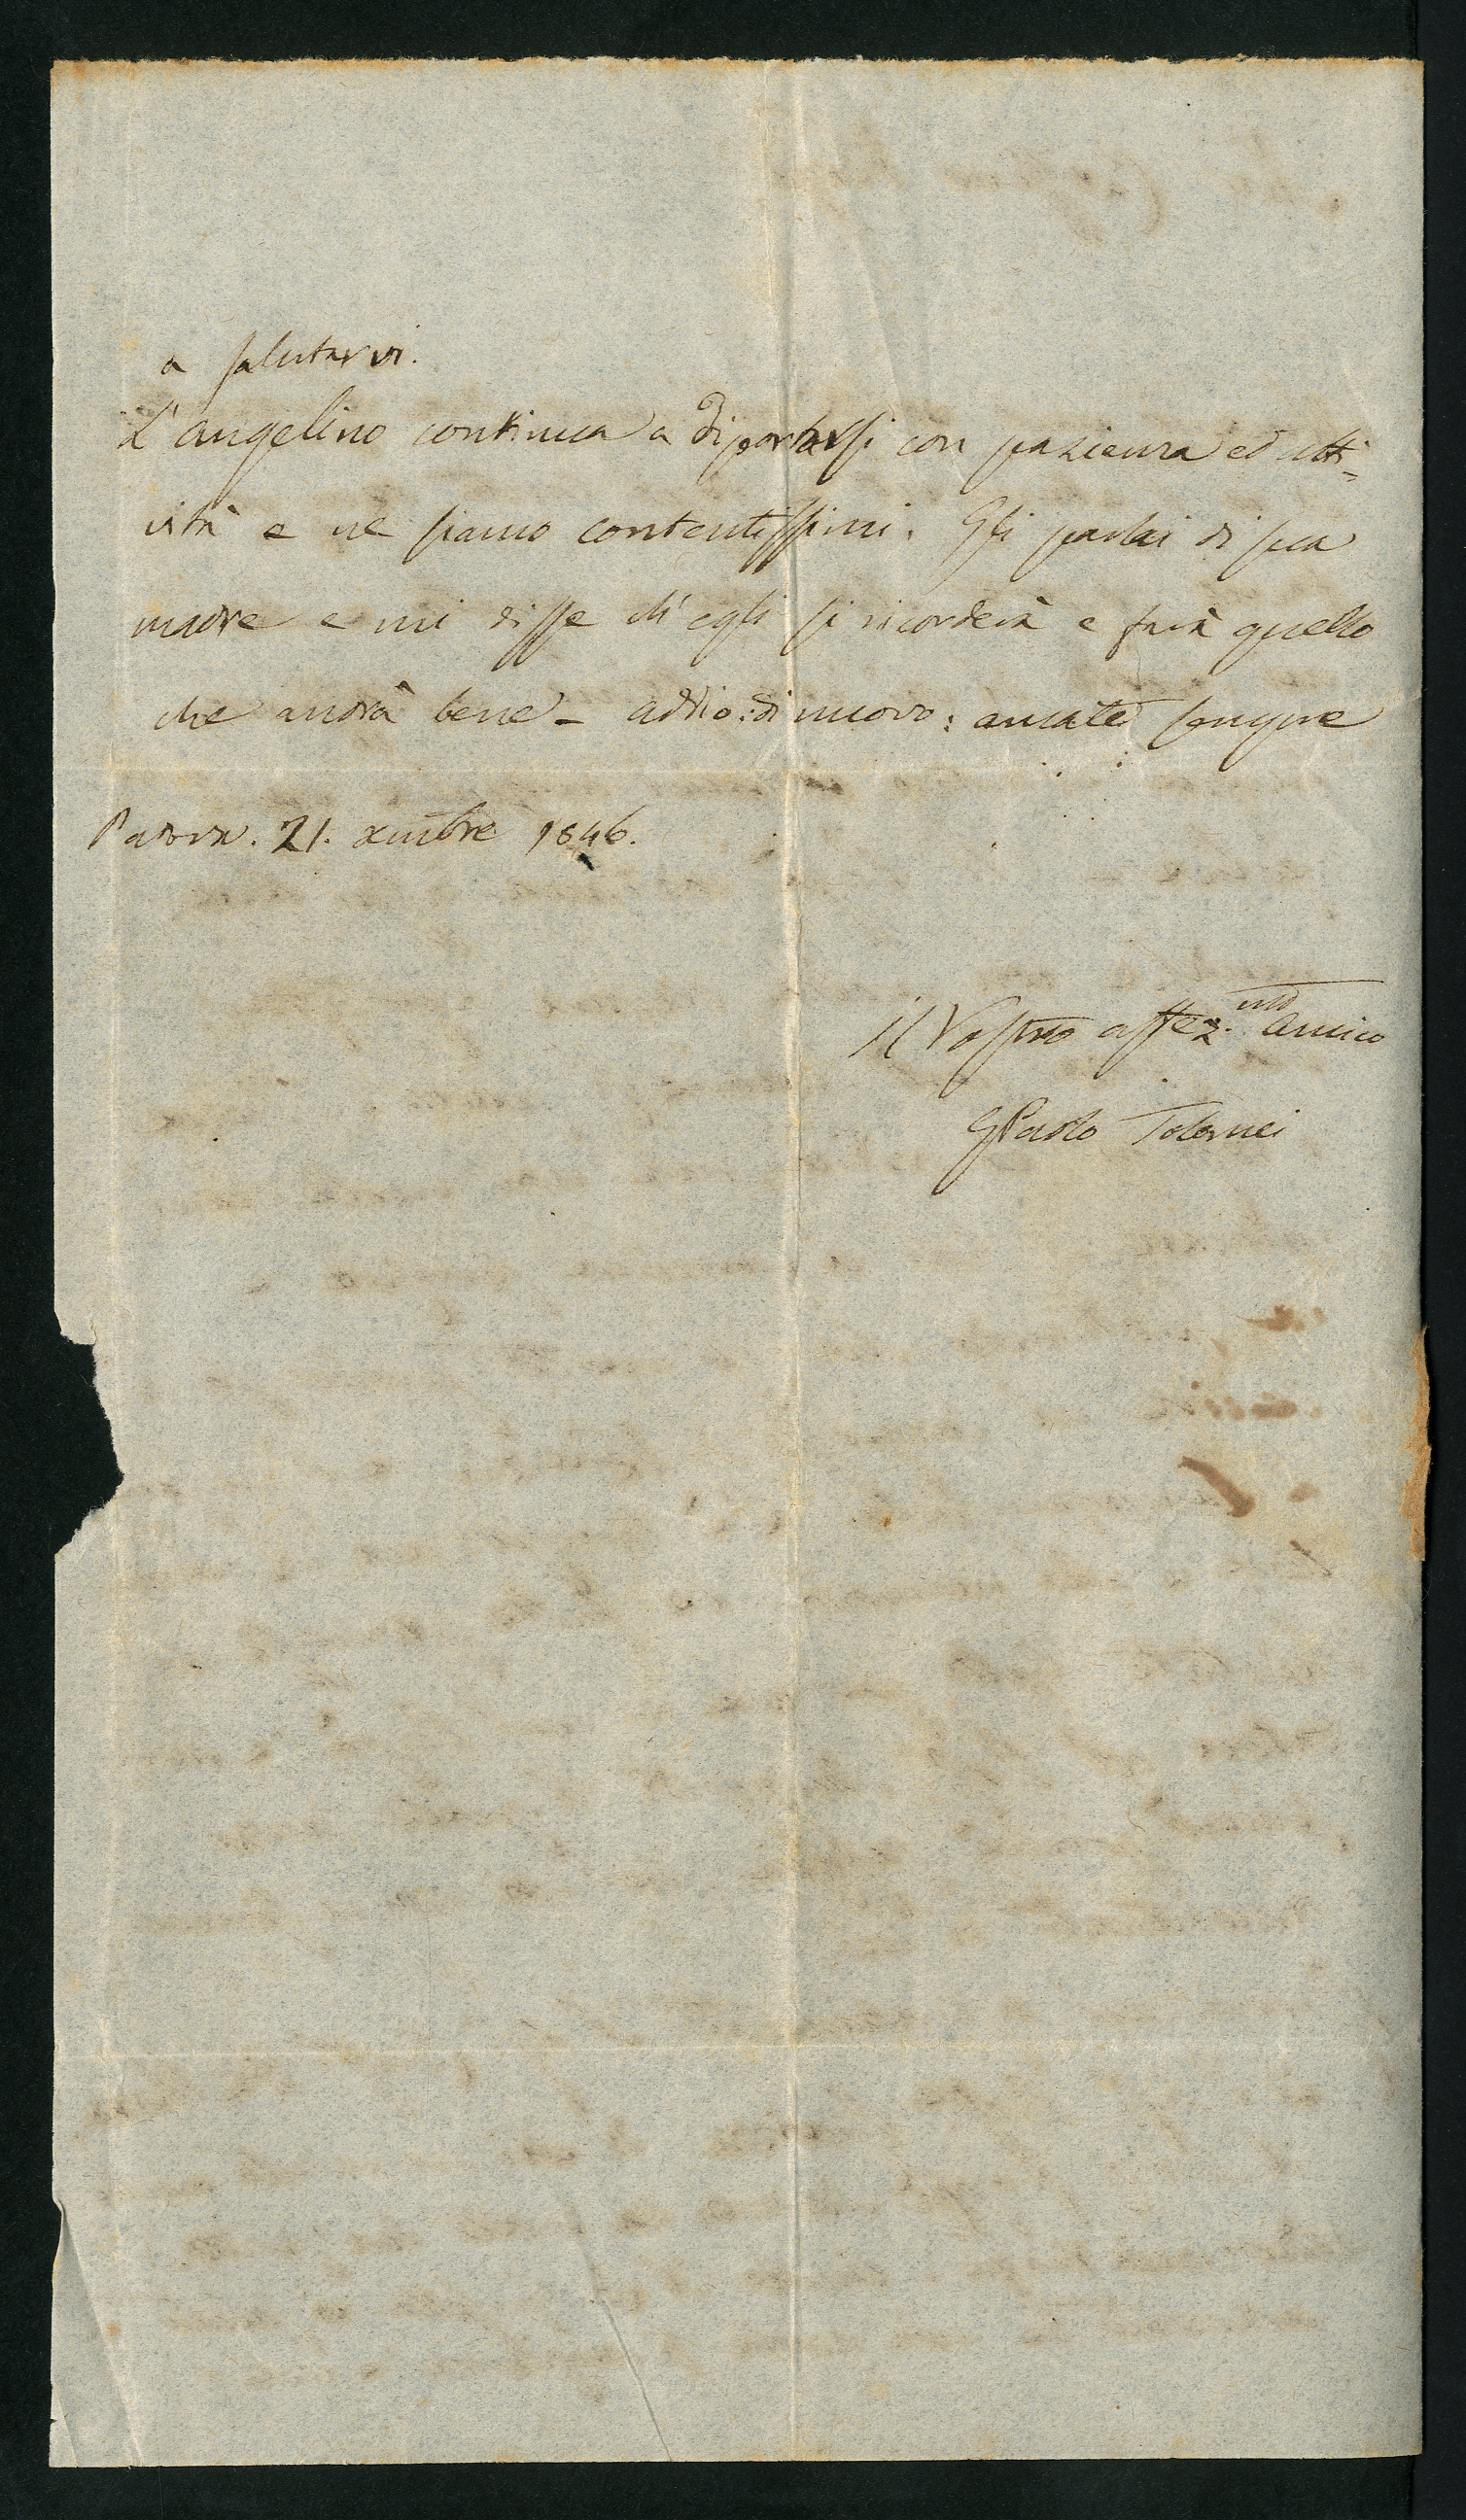 a salutarvi.
L'angelino continua a diportarsi con pazienza ed atti=
vità e ne siamo contentissimi. Gli parlai di sua
madre e mi disse ch'egli si ricorderà e farà quello
che andrà bene - addio: di nuovo: amate sempre
Padova. 21. xmbre 1846.
il Vostro affez.mo amico
GPaolo Tolomei